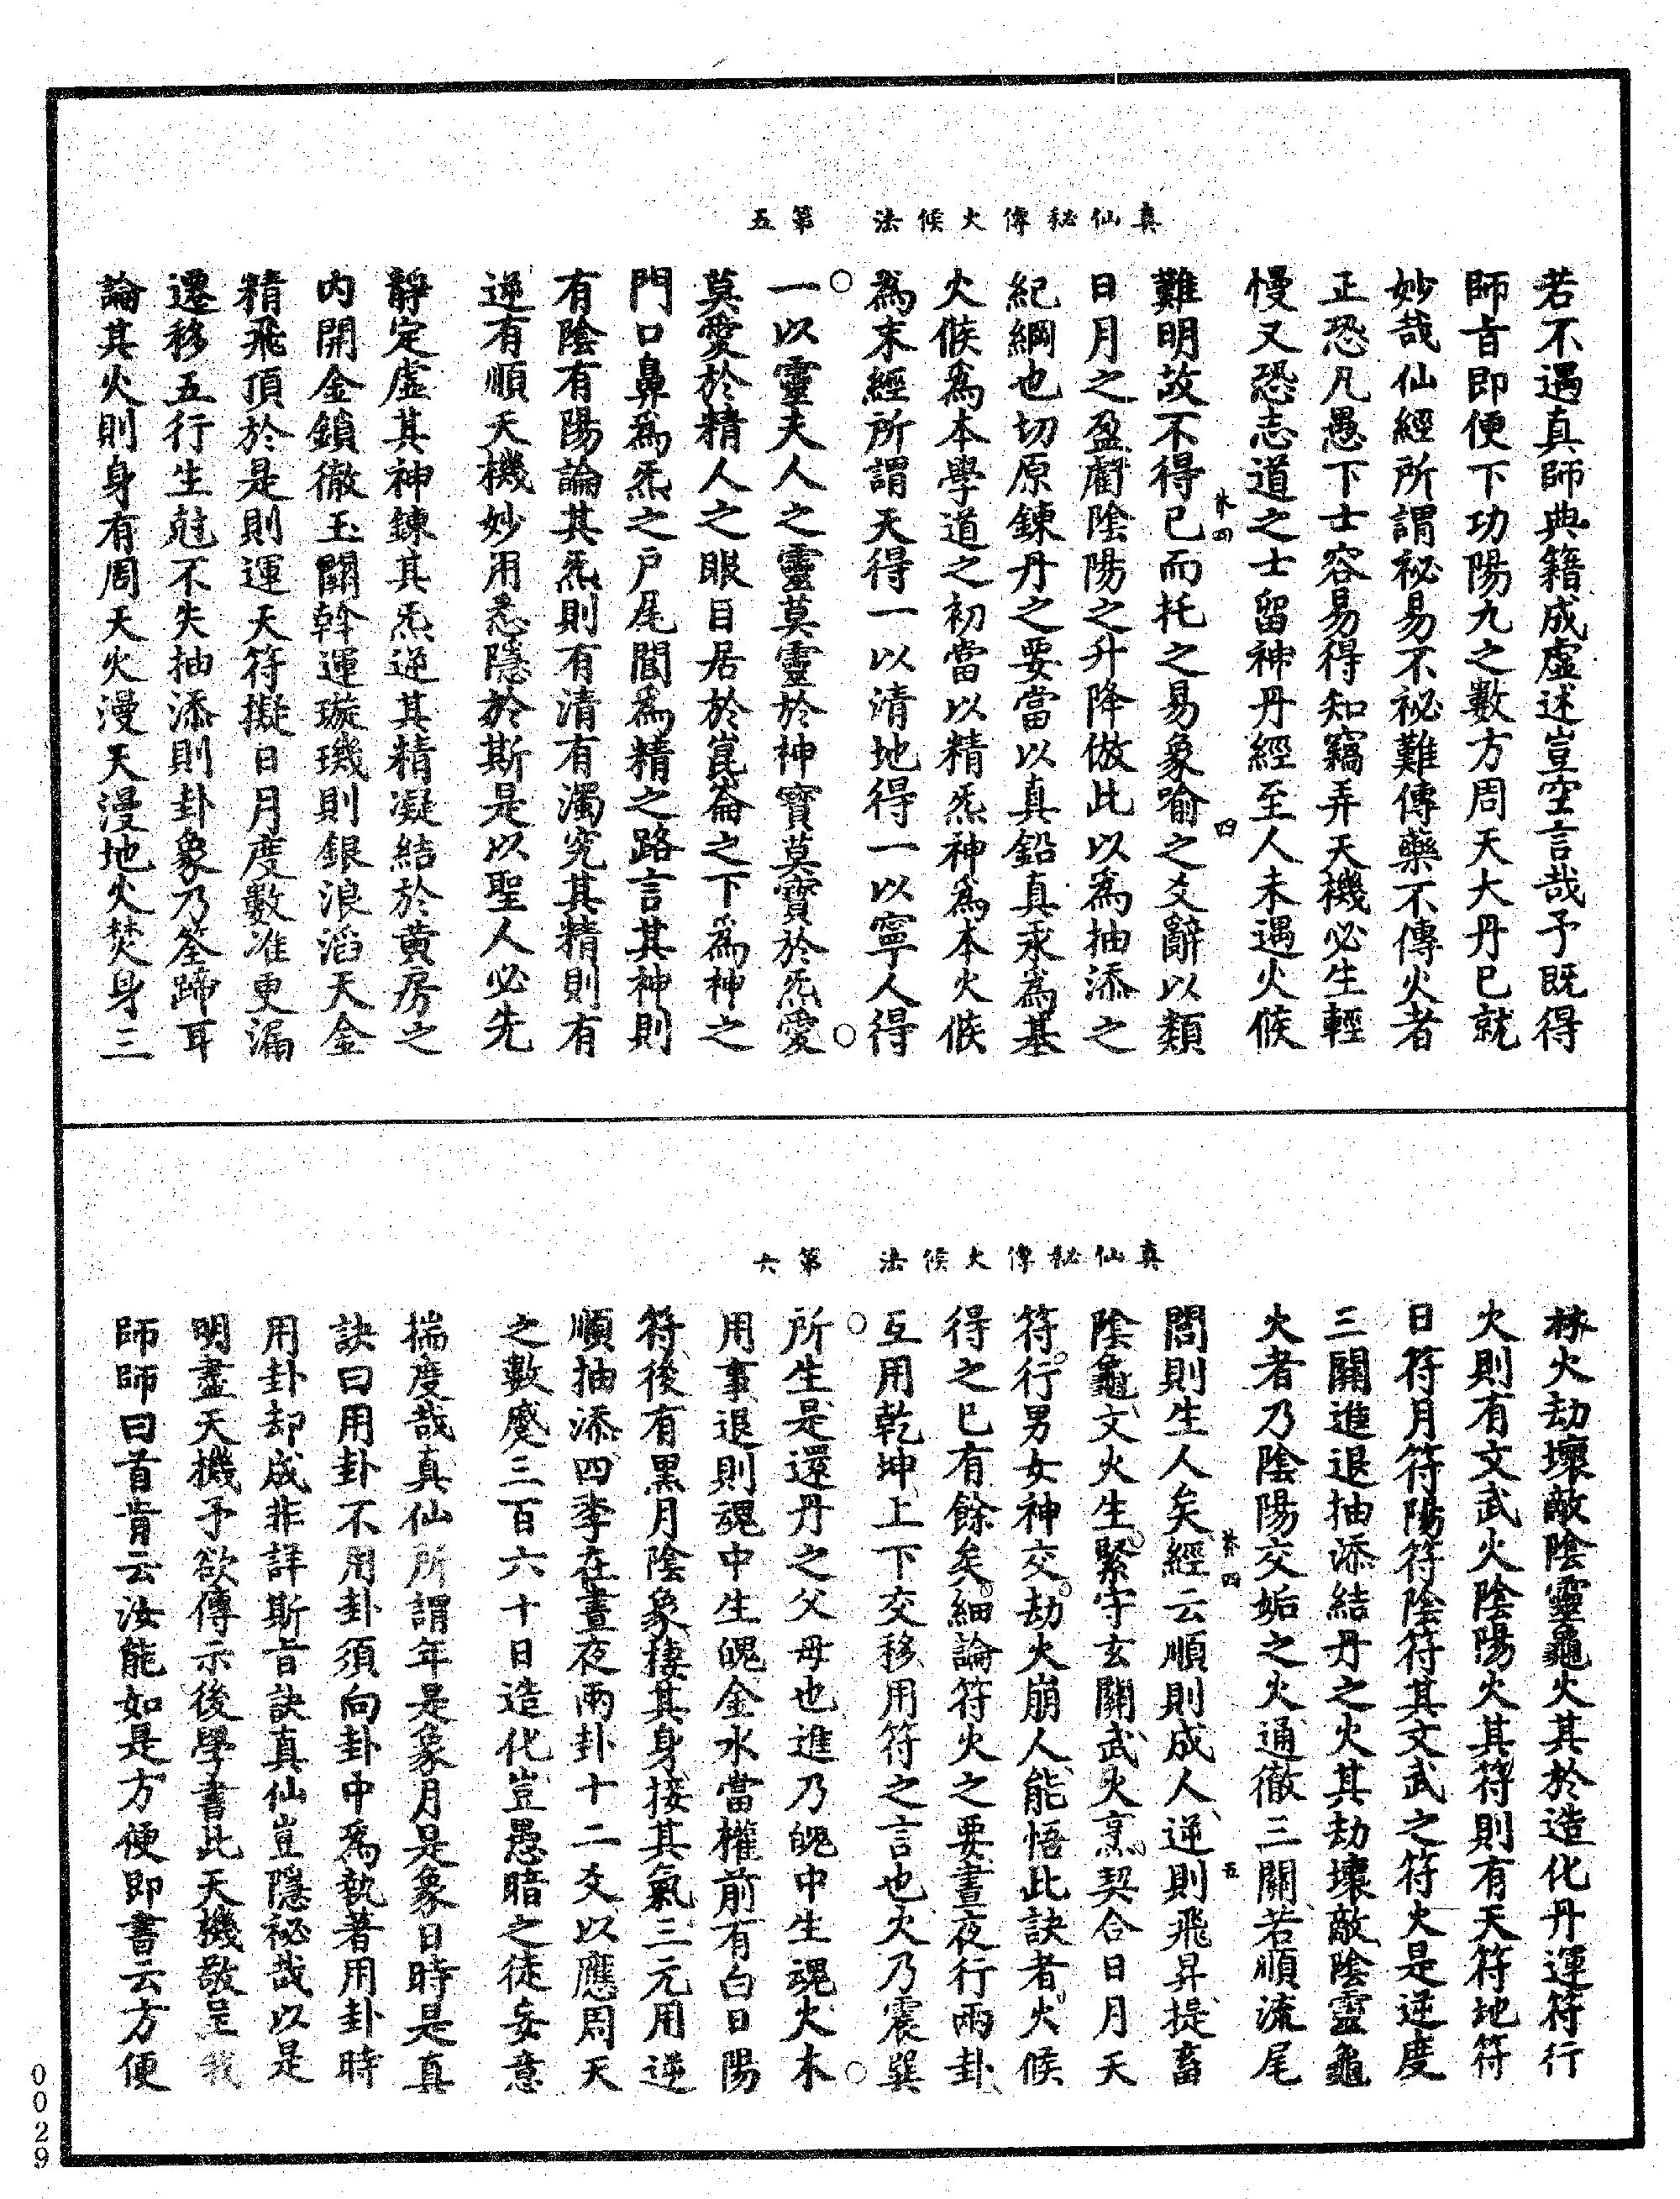 真仙秘傳火候法　第五
若不遇真師典籍成虛述豈空言哉予既得
師旨即便下功陽九之數方周天大丹已就
妙哉仙經所謂祕易不祕難傳藥不傳火者
正恐凡愚下士容易得知竊弄天機必生輕
慢又恐志道之士留神丹經至人未遇火候
難明故不得已而托之易象喻之爻辭以類
日月之盈虧陰陽之升降倣此以為抽添之
紀綱也切原鍊丹之要當以真鉛真汞為基
火候為本學道之初當以精炁神為本火候
為末經所謂天得一以清地得一以寧人得
一以靈夫人之靈莫靈於神寳莫寳於炁愛
莫愛於精人之眼目居於崑崙之下為神之
門口鼻為炁之戶尾閭為精之路言其神則
有陰有陽論其炁則有清有濁究其精則有
逆有順天機妙用悉隱於斯是以聖人必先
靜定虛其神鍊其炁逆其精凝結於黄房之
内開金鎖徹玉關斡運璇璣則銀浪滔天金
精飛頂於是則運天符擬日月度數准更漏
遷移五行生尅不失抽添則卦象乃筌蹄耳
論其火則身有周天火漫天漫地火焚身三
真仙秘傳火候法　第六
昧火劫壞敵陰靈龜火其於造化丹運符行
火則有文武火陰陽火其符則有天符地符
日符月符陽符陰符其文武之符火是逆度
三關進退抽添結丹之火其劫壞敵陰靈龜
火者乃陰陽交姤之火通徹三關若順流尾
閭則生人矣經云順則成人逆則飛昇提畜
陰龜文火生緊守玄關武火烹契合日月天
符行男女神交劫火崩人能悟此訣者火候
得之已有餘矣細論符火之要晝夜行兩卦
互用乾坤上下交移用符之言也火乃震巽
所生是還丹之父母也進乃魄中生魂火木
用事退則魂中生魄金水當權前有白日陽
符後有黑月陰象棲其身接其氣三元用逆
順抽添四季在晝夜兩卦十二爻以應周天
之數處三百六十日造化豈愚暗之徒妄意
揣度哉真仙所謂年是象月是象日時是真
訣曰用卦不用卦須向卦中為執著用卦時
用卦却成非詳斯旨訣真仙豈隱祕哉以是
明盡天機予欲傳示後學書此天機敬呈我
師師曰首肯云汝能如是方便即書云方便
0029